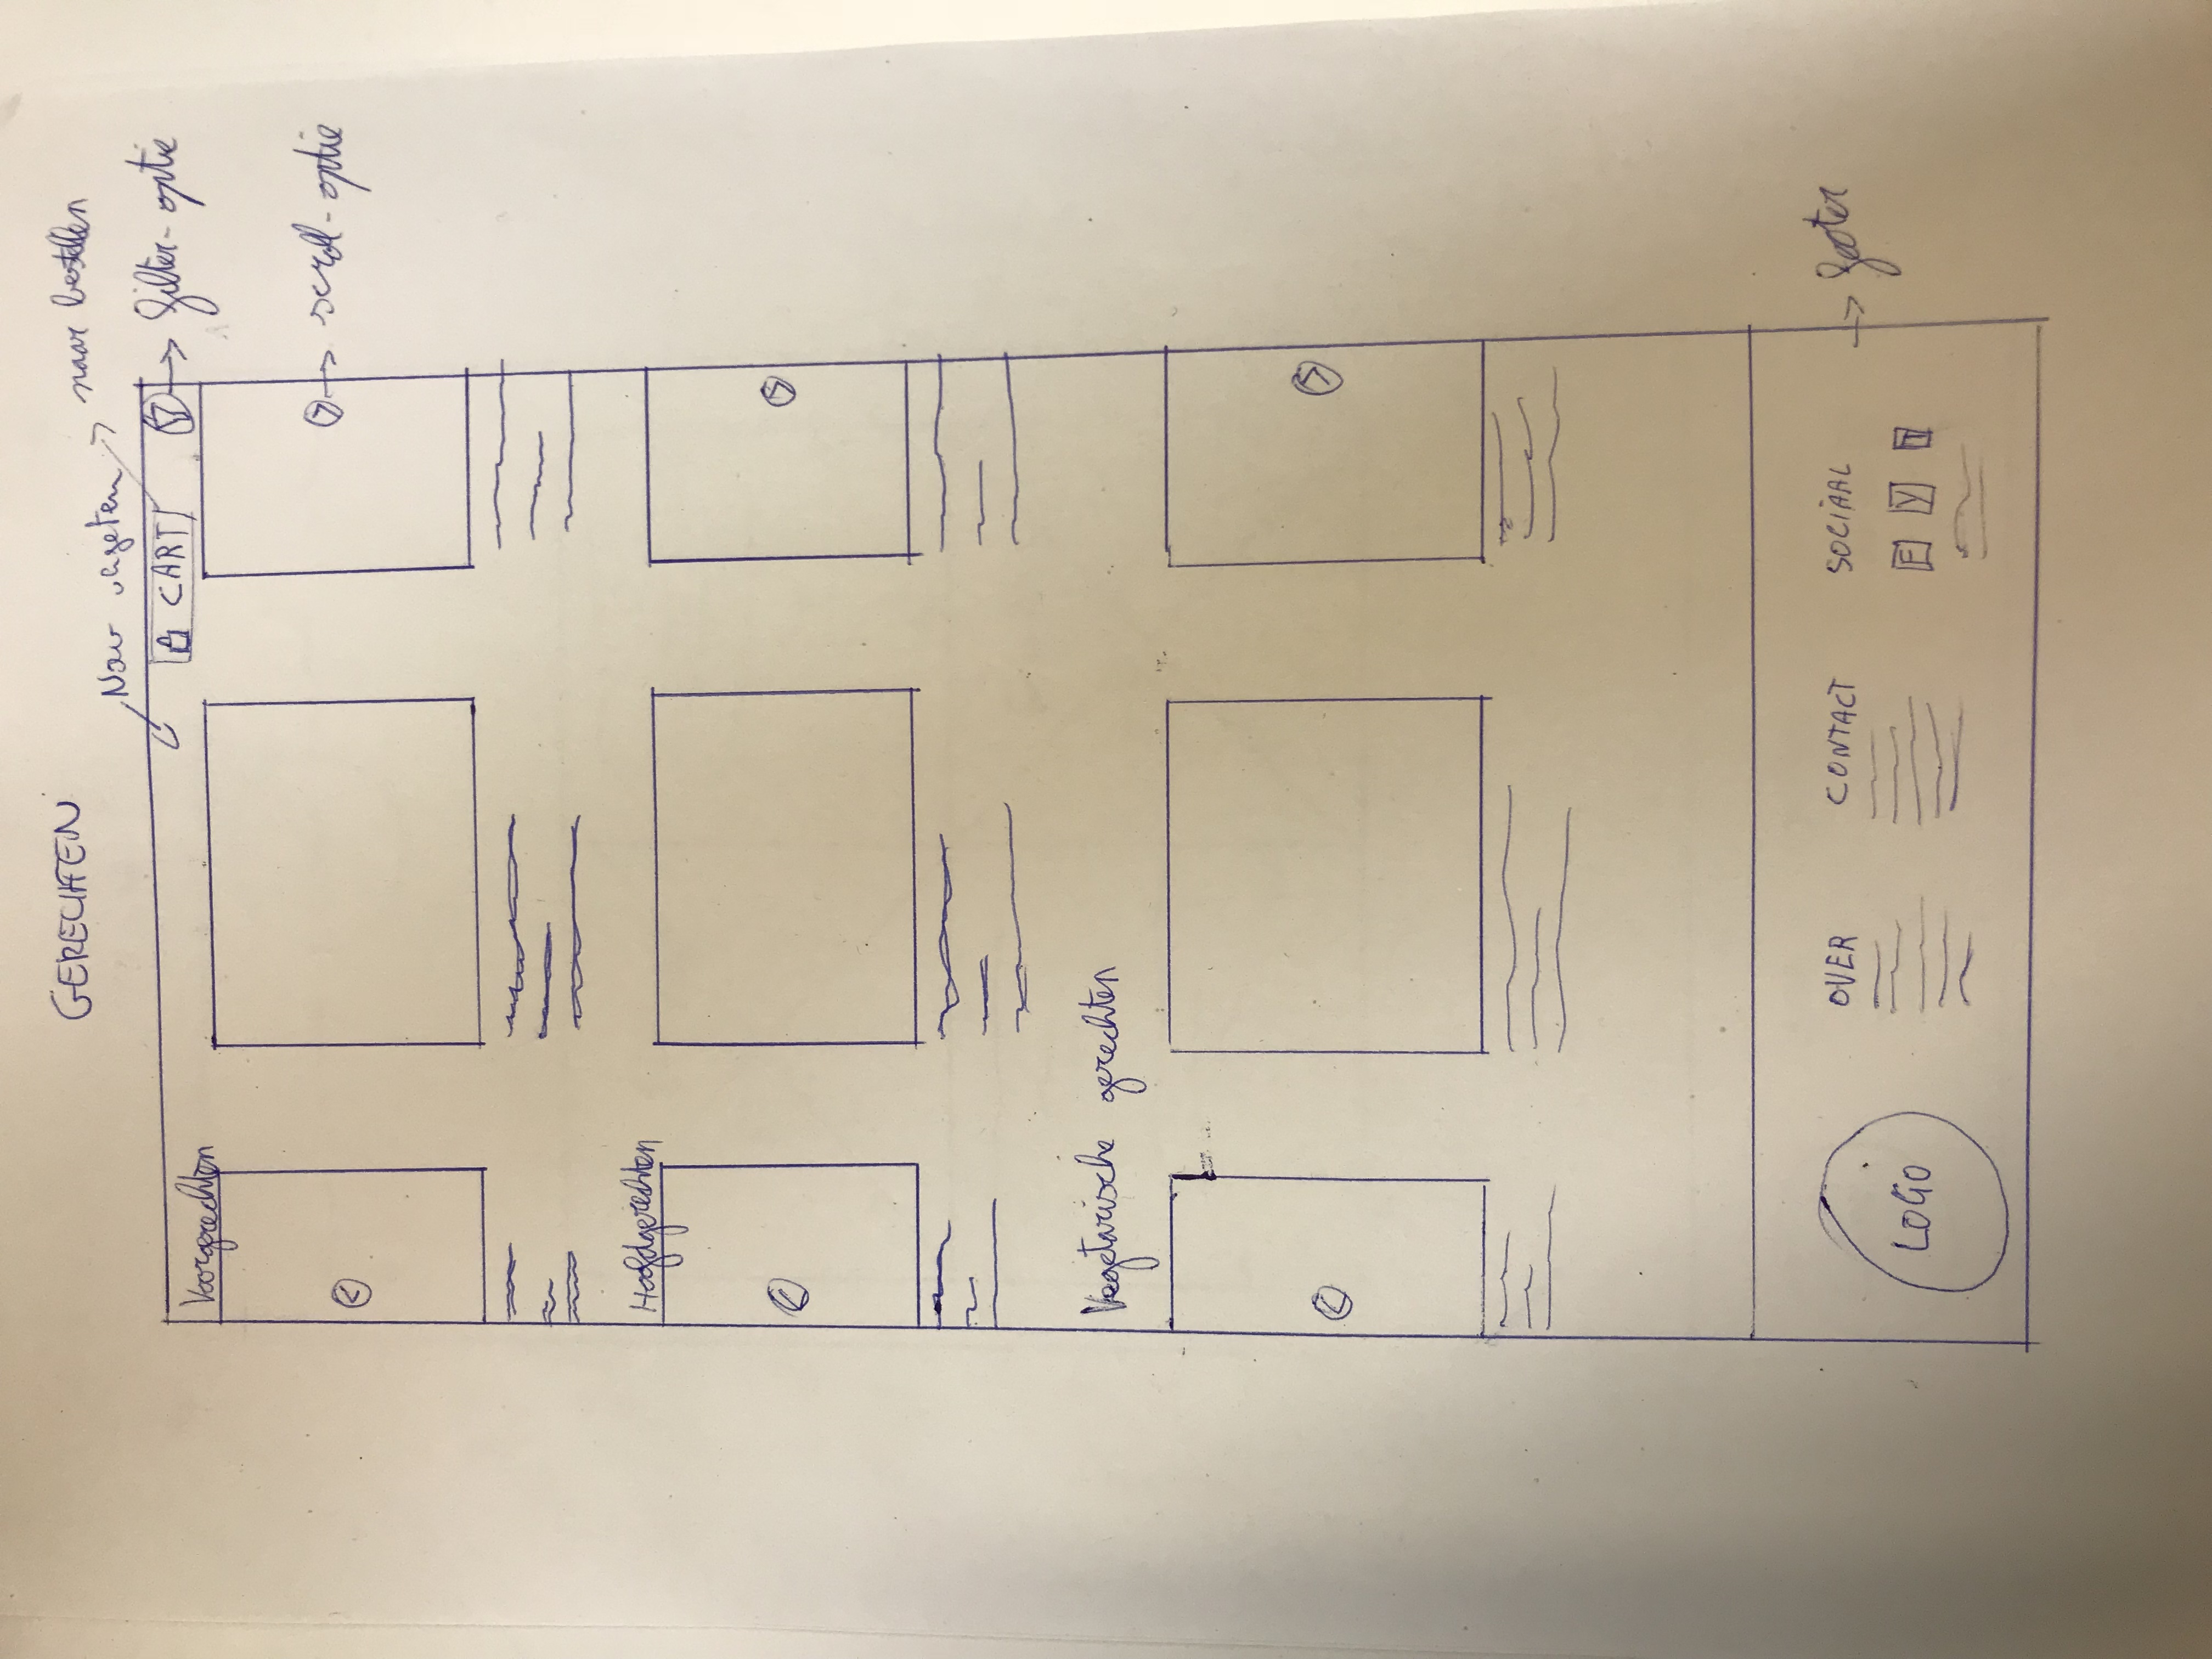 GERECHTEN
naar bestellen
Nav vergeten
CART
filter-optie
Voorgerechten
<
>
scroll-optie
Hoofdgerechten
<
>
Vegetarische gerechten
<
>
OVER
CONTACT
SOCIAAL
footer
LOGO
F Y T